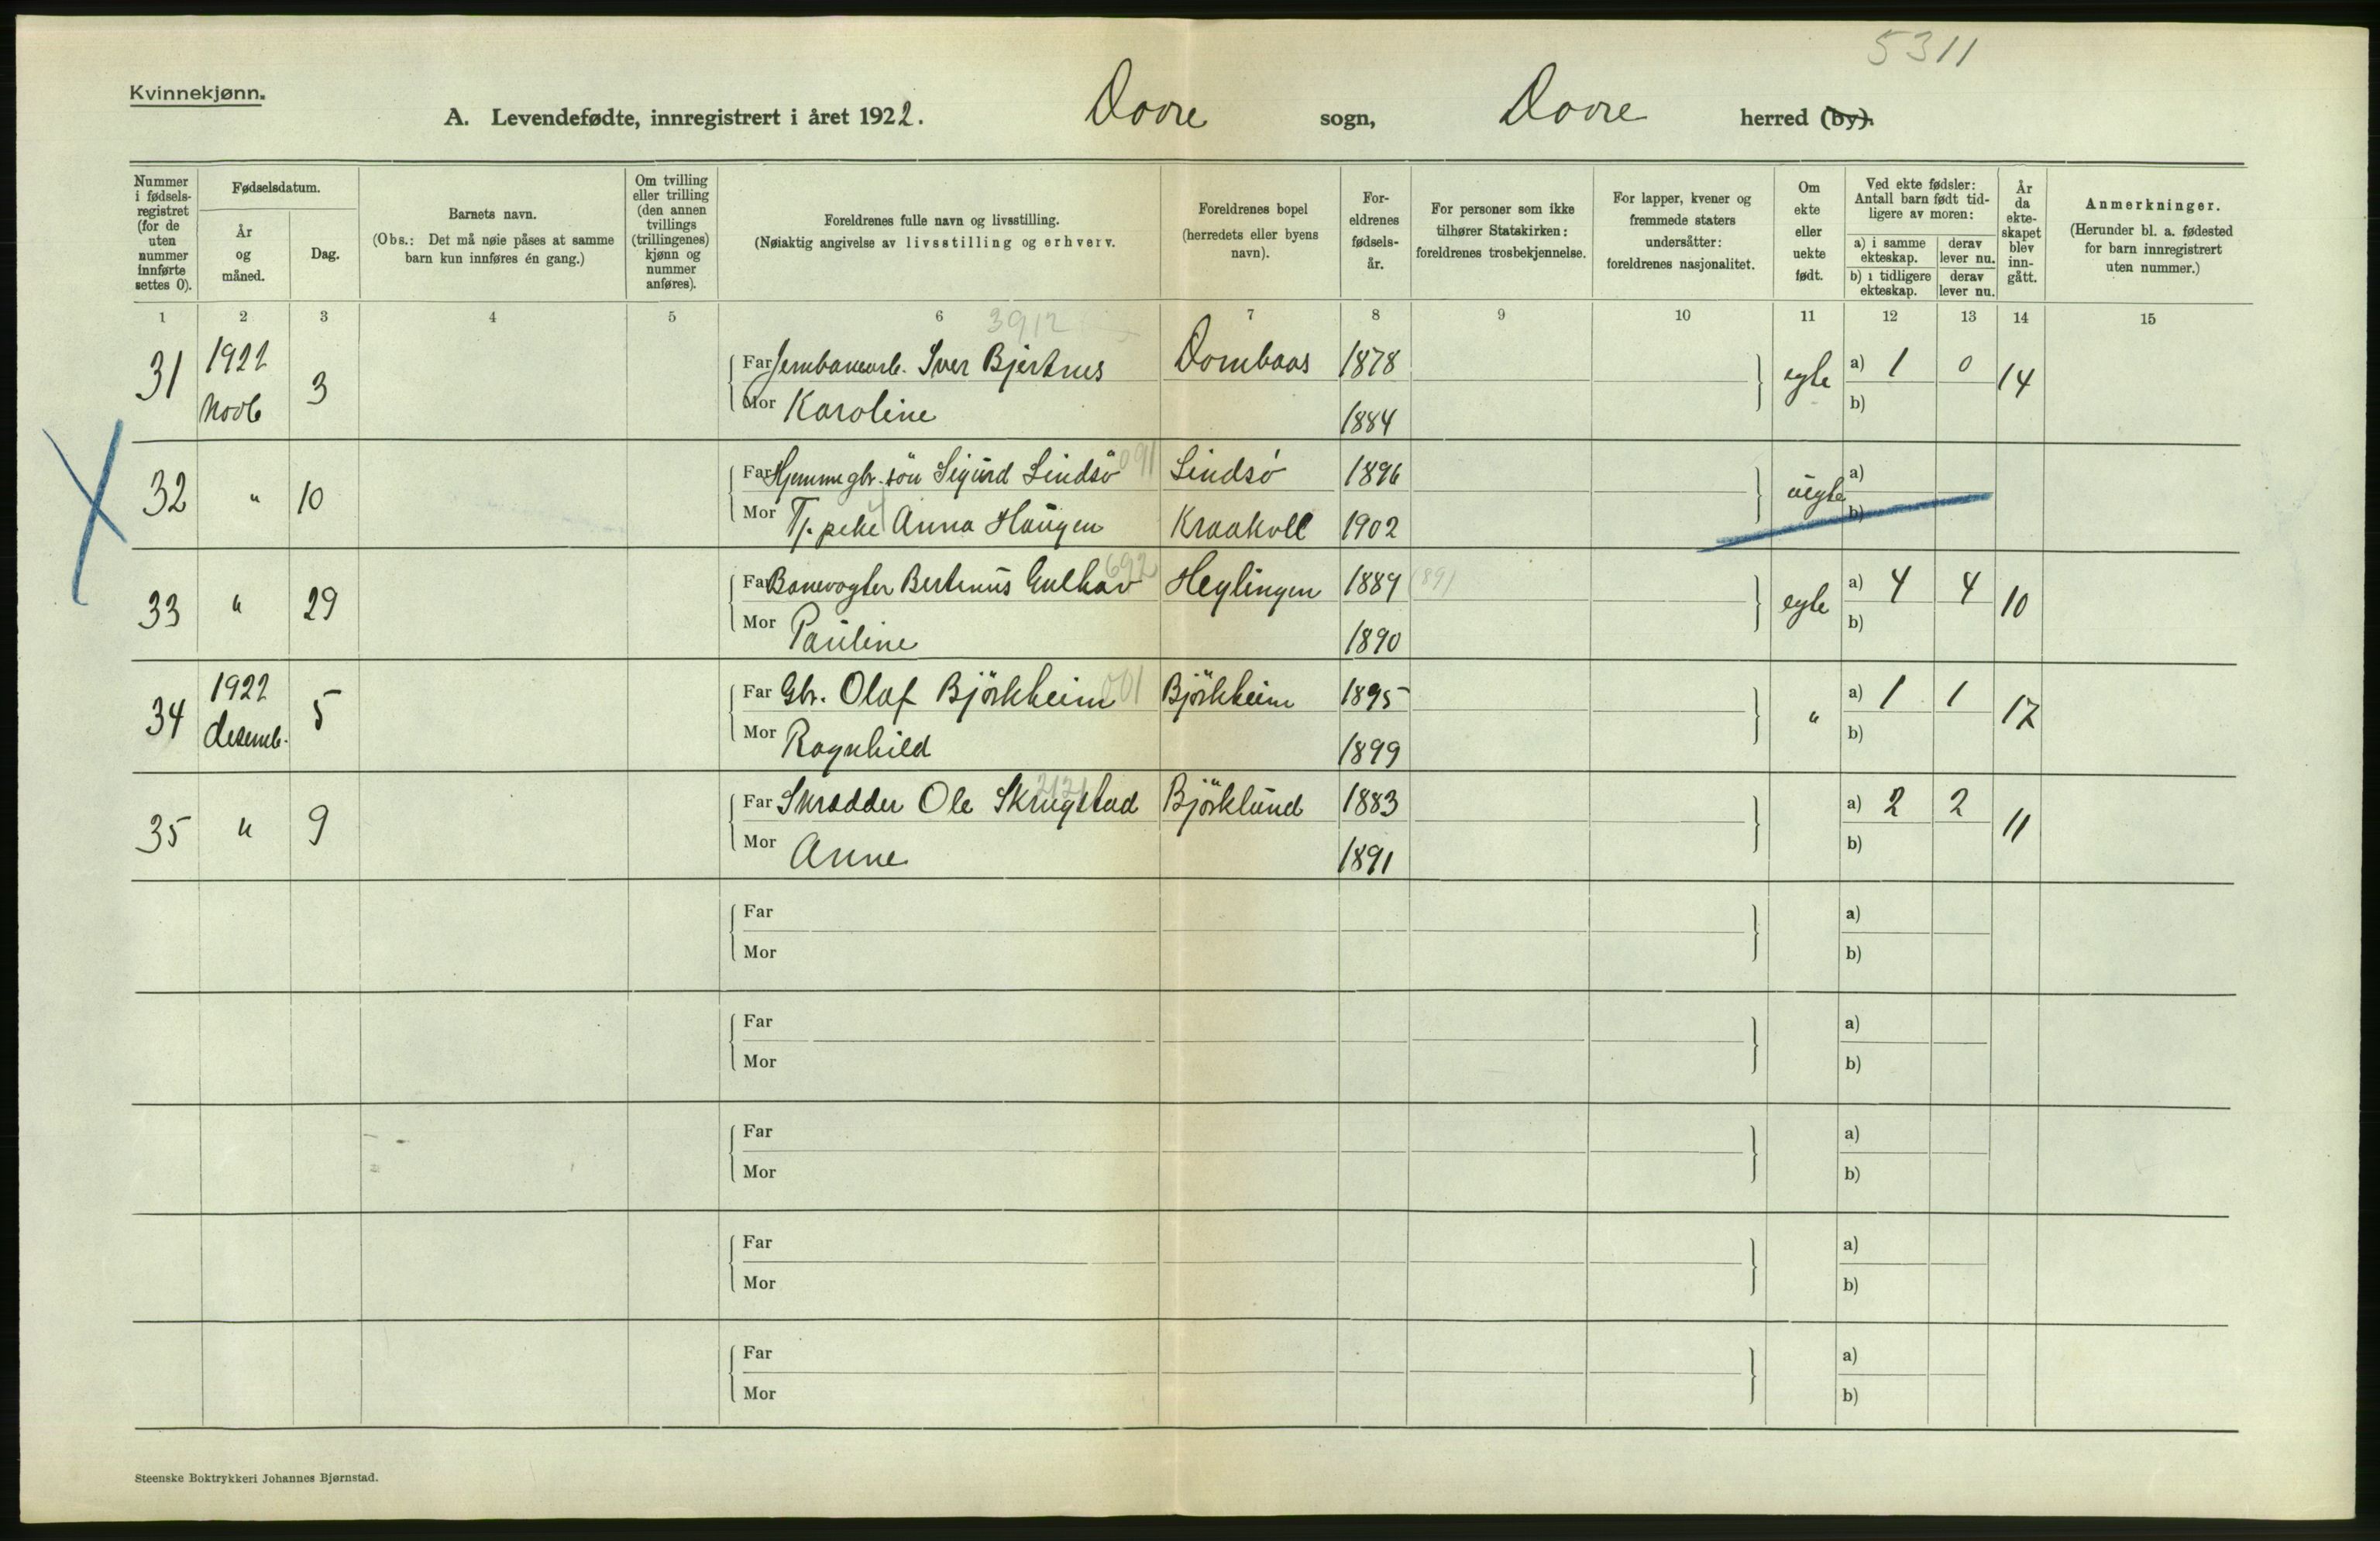 5311
Kvinnekjønn.
A. Levendefødte, innregistrert i året 1922. Dovre sogn, Dovre herred (by).
Nummer i fødsels-registret (for de uten nummer innførte settes 0).
Fødselsdatum.
År og måned.
Dag.
Barnets navn.
(Obs.: Det må nøie påses at samme barn kun innføres én gang.)
Om tvilling eller trilling (den annen tvillings (trillingenes) kjønn og nummer anføres).
Foreldrenes fulle navn og livsstilling.
(Nøiaktig angivelse av livsstilling og erhverv.
Foreldrenes bopel (herredets eller byens navn).
For-eldrenes fødsels-år.
For personer som ikke tilhører Statskirken: foreldrenes trosbekjennelse.
For lapper, kvener og fremmede staters undersåtter: foreldrenes nasjonalitet.
Om ekte eller uekte født.
Ved ekte fødsler: Antall barn født tid-ligere av moren:
a) i samme ekteskap.
derav lever nu.
b) i tidligere ekteskap.
derav lever nu.
År da ekte-skapet blev inn-gått.
Anmerkninger.
(Herunder bl. a. fødested for barn innregistrert uten nummer.)
1 2 3 4 5 6 7 8 9 10 11 12 13 14 15
3912
31 1922 Novb 3 Far Jernbanearb. Iver Bjerknes Dombaas 1878 egte a) 1 0 14
Mor Karoline 1884 b)
32 " 10 Far Hjemme gbr. sön Sigurd Lindsö 091 Lindsö 1896 uegte a)
Mor Tj. peike Anna Haugen Kraakvll 1902 b)
33 " 29 Far Banevogter Bertinus Gulhav 692 Heglingen 1889 (891 egte a) 4 4 10
Mor Pauline 1890 b)
34 1922 desemb. 5 Far Gbr. Olaf Björkheim 001 Björkheim 1895 " a) 1 1 17
Mor Ragnhild 1899 b)
35 " 9 Far Skrædder Ole Skrugstad Björklund 1883 a) 2 2 11
Mor Anne 1891 b)
Far a)
Mor b)
Far a)
Mor b)
Far a)
Mor b)
Far a)
Mor b)
Far a)
Mor b)
Steenske Boktrykkeri Johannes Bjørnstad.